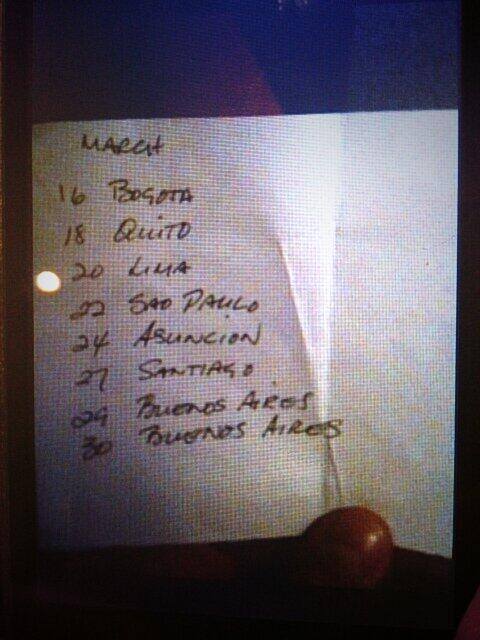 MARCH
16 BOGOTA
18 QUITO
20 LIMA
22 SAO PAULO
24 ASUNCION
27 SANTIAGO
29 BUENOS AIRES
30 BUENOS AIRES